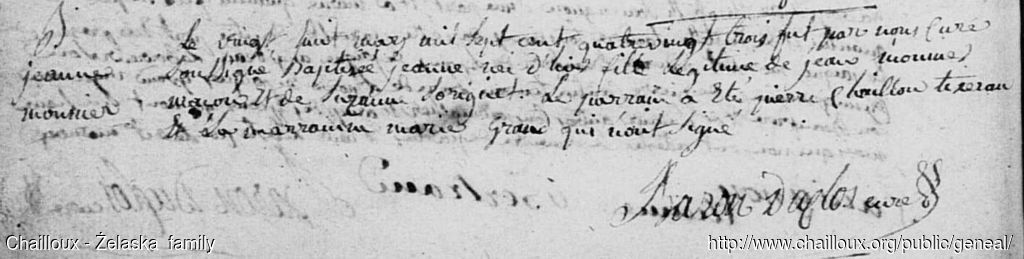 B
jeanne
monnier
Le vingt huit mars mil sept cent quatre vingt trois fut par nous Curé
soussigné baptisée jeanne née d'hier fille Legitime de jean monnier
maçon, Et de suzanne Le parrain a Eté pierre Chaillou texeran
Et La marrainne marie grand qui n'ont signé
Baron Duclos curé
Chailloux - Żelaska family
http://www.chailloux.org/public/geneal/